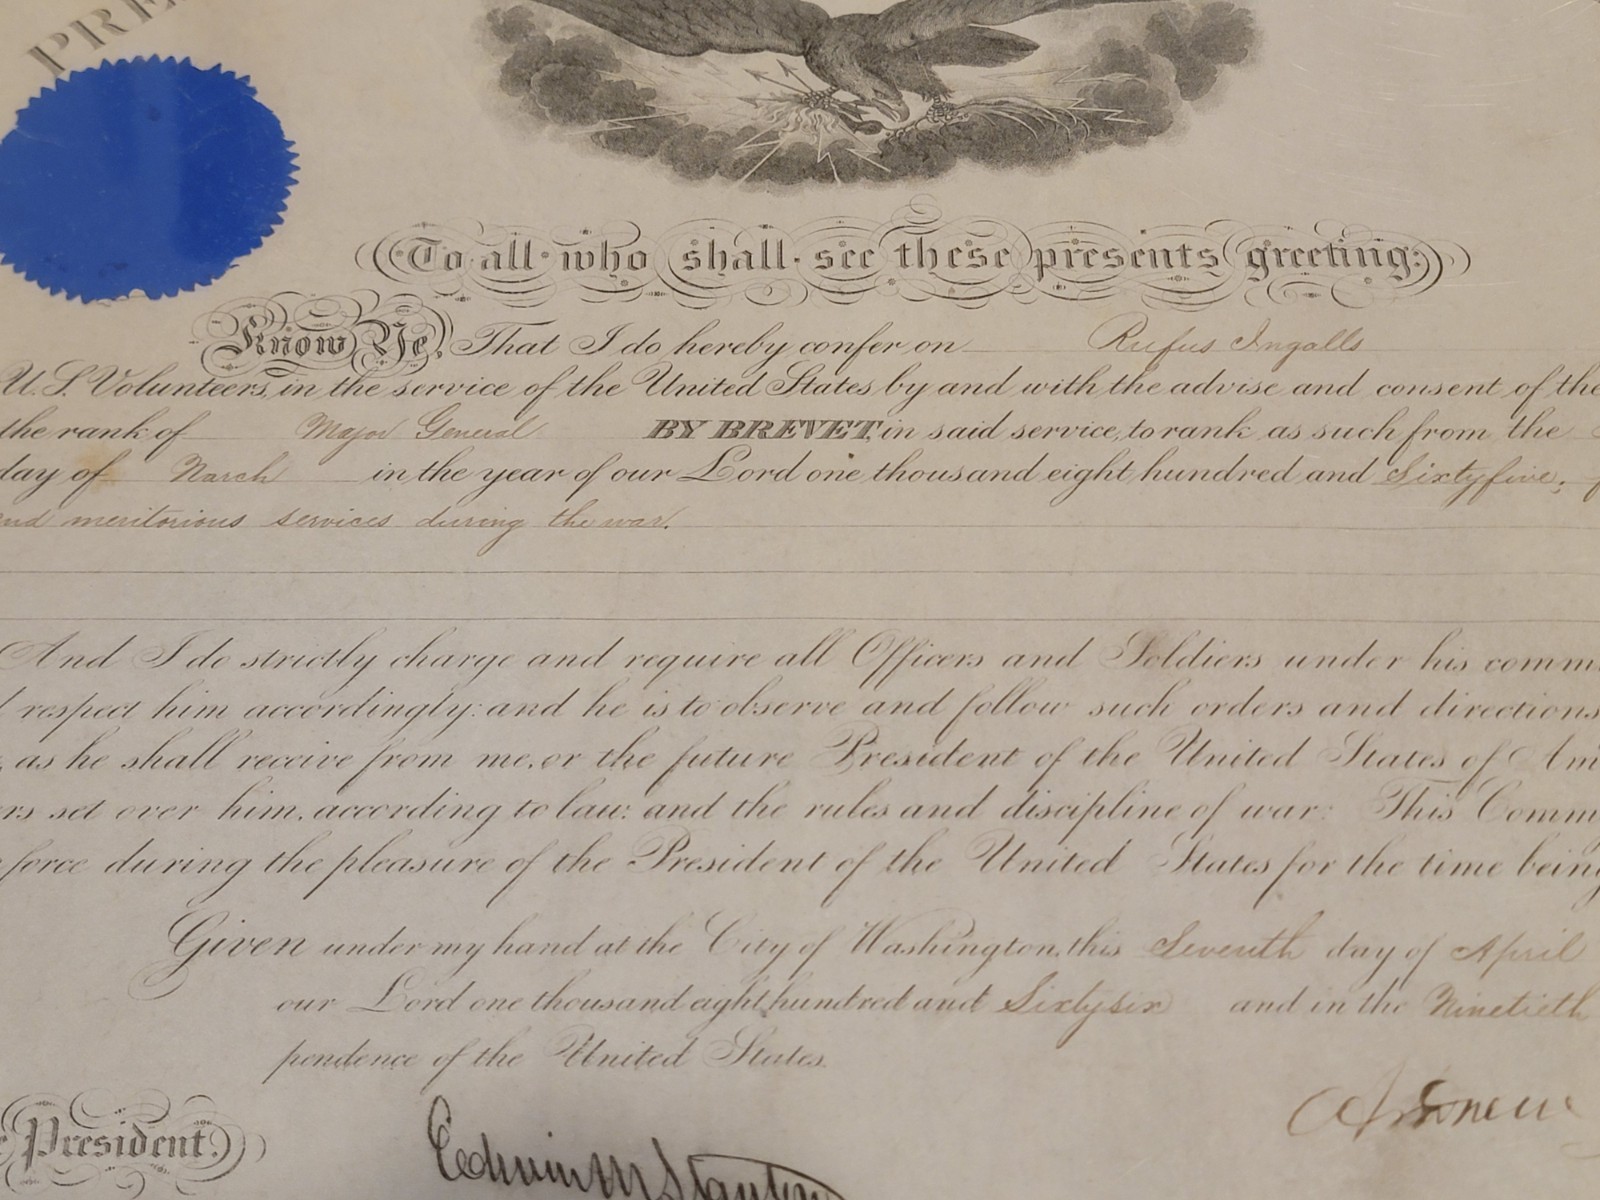 PRE
To all who shall see these presents greeting:
Know Ye, That I do hereby confer on Rufus Ingalls
U.S. Volunteers, in the service of the United States by and with the advise and consent of the
the rank of Major General BY BREVET, in said service, to rank as such from the
day of March in the year of our Lord one thousand eight hundred and Sixtyfive;
and meritorious services during the war.
And I do strictly charge and require all Officers and Soldiers under his comm
respect him accordingly: and he is to observe and follow such orders and directions
as he shall receive from me, or the future President of the United States of Am
rs set over him, according to law: and the rules and discipline of war: This Comm
force during the pleasure of the President of the United States for the time being
Given under my hand at the City of Washington, this Seventh day of April
our Lord one thousand eight hundred and Sixtysix and in the Ninetieth
pendence of the United States.
President.
Edwin M Stanton